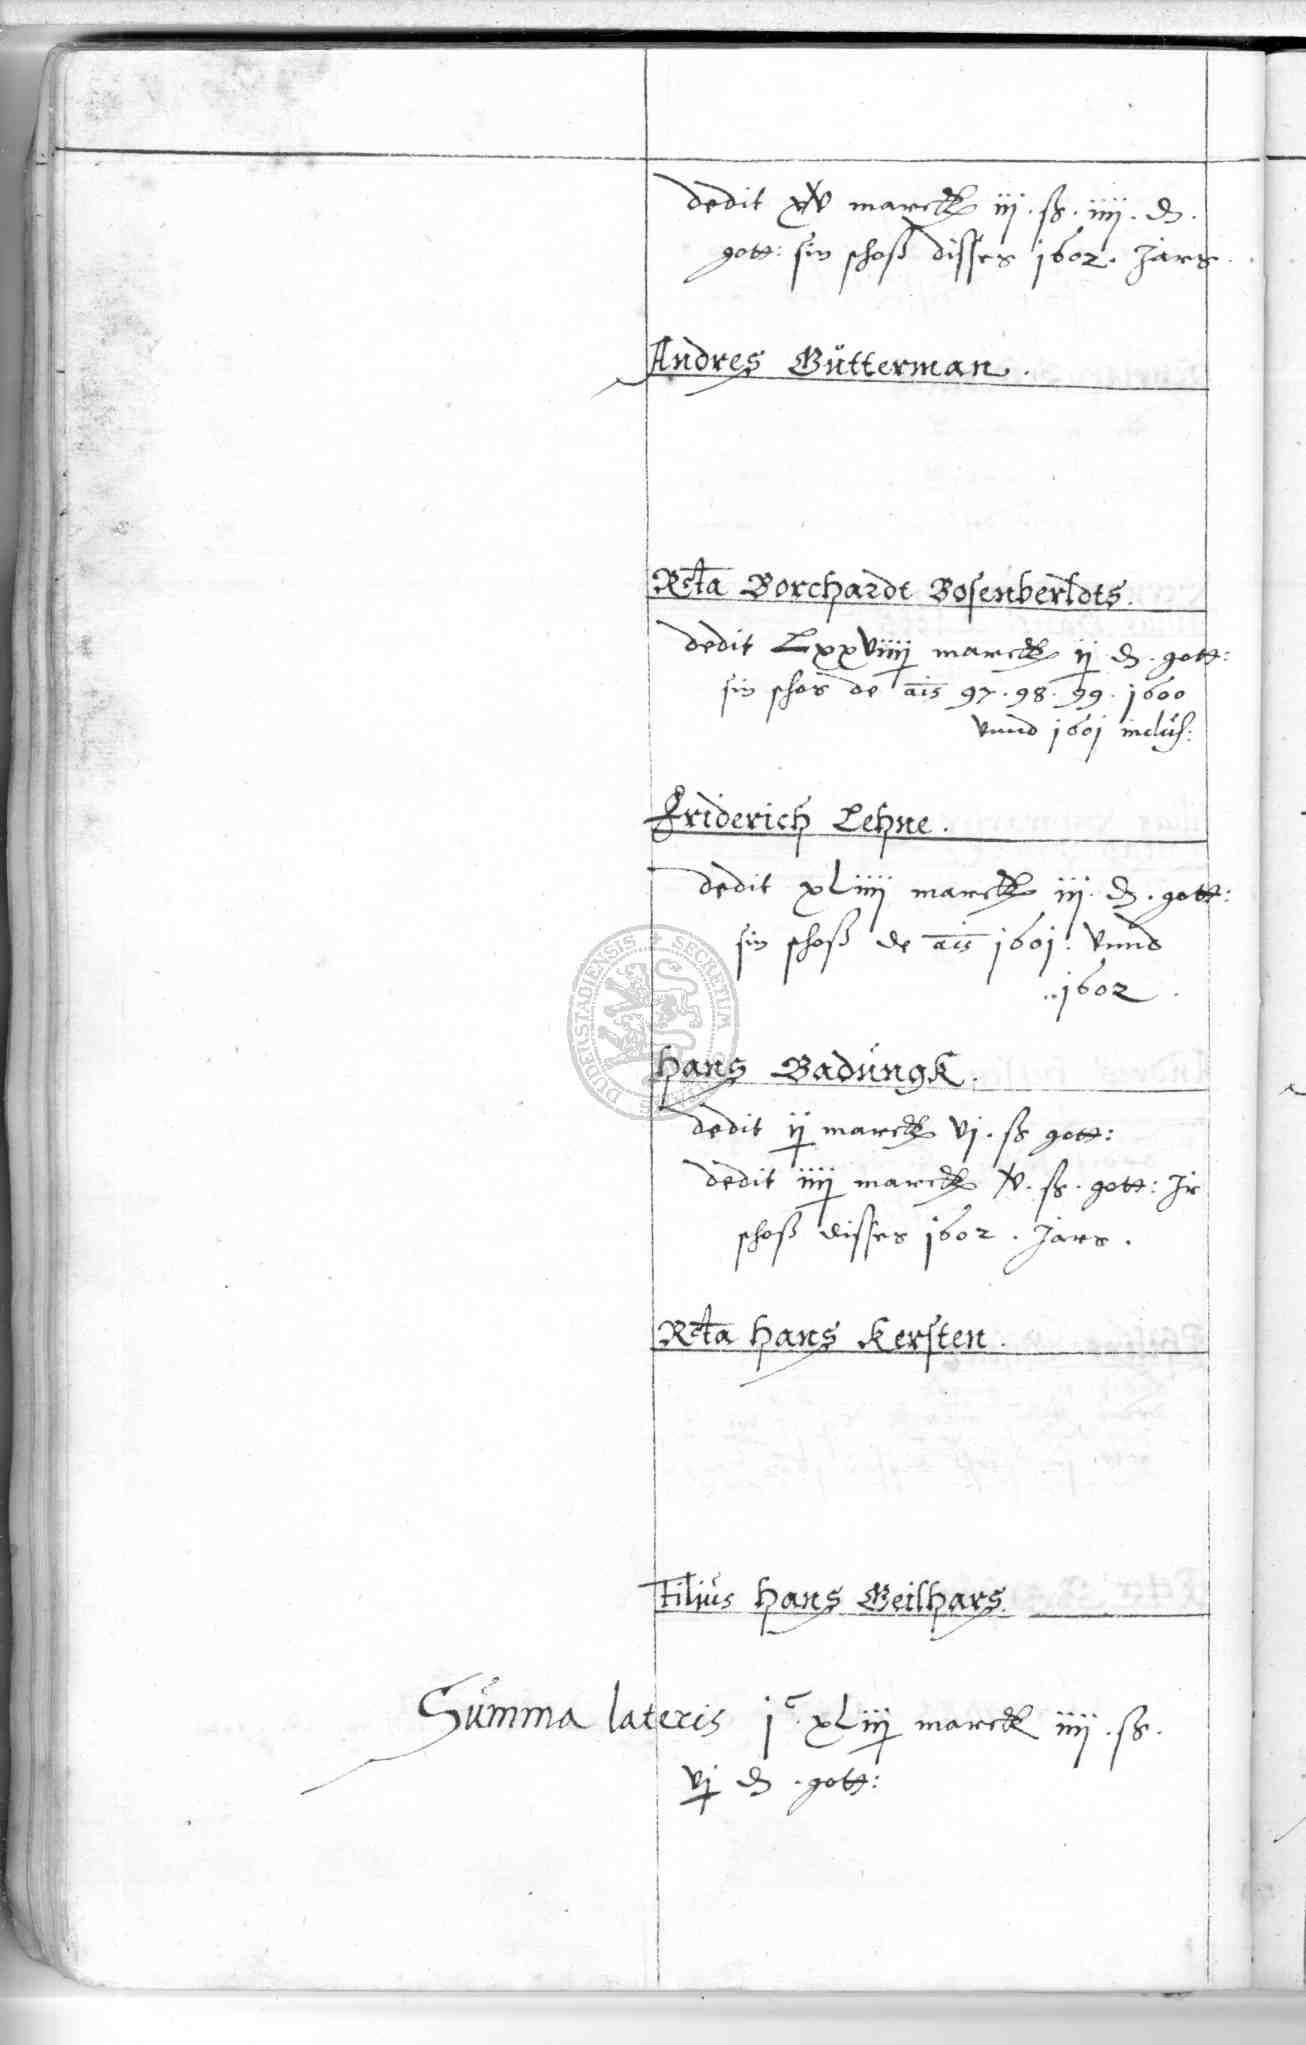 dedit xv marck iij · ß · iiij · ₰ ·
gott: sin schoß disses 1602 · Jars ·
Andres Gütterman ·
Rcta Borchardt Bosenberldts ·
dedit Lxxviiij marck ij ₰ · gott:
sin schos de ais 97 · 98 · 99 · 1600
vnnd 1601 inclus:
Friderich Lehne ·
dedit xLiiij marck iij · ₰ · gott:
sin schoß de ais 1601 : vnnd
1602 ·
Hans Badungk ·
dedit ij marck vj · ß gott:
dedit iiij marck v · ß · gott: Jr
schoß disses 1602 · Jars ·
Rcta Hans Kersten ·
Filius Hans Geilhars
Summa lateris jᶜ · xLiij marck iiij · ß ·
vj ₰ · gott:
DUDERSTADIENSIS SECRETUM